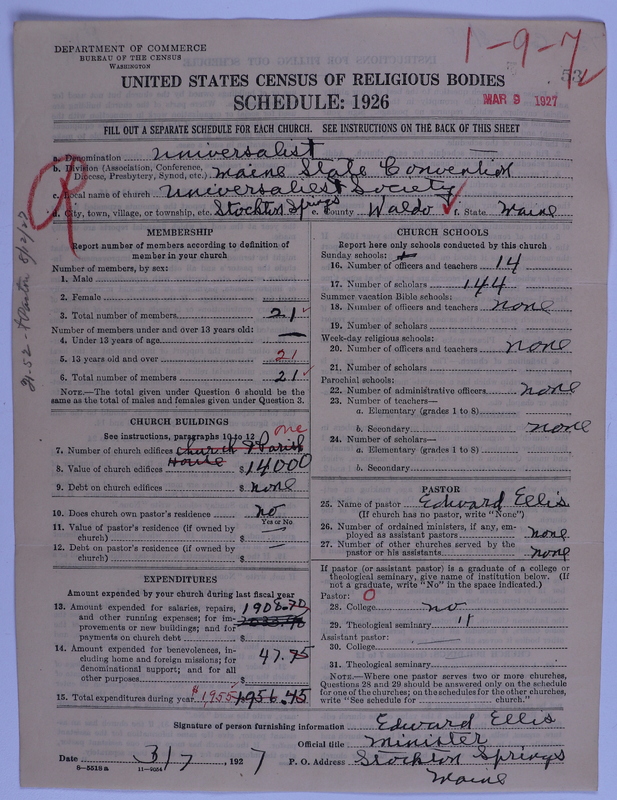 DEPARTMENT OF COMMERCE
BUREAU OF THE CENSUS
WASHINGTON
1-9-7
53
MAR 9 1927
UNITED STATES CENSUS OF RELIGIOUS BODIES
SCHEDULE: 1926
FILL OUT A SEPARATE SCHEDULE FOR EACH CHURCH. SEE INSTRUCTIONS ON THE BACK OF THIS SHEET
a. Denomination Universalist
b. Division (Association, Conference, Diocese, Presbytery, Synod, etc.) Maine State Convention
c. Local name of church Universalist Society
d. City, town, village, or township, etc. Stockton Springs e. County Waldo f. State Maine
MEMBERSHIP
Report number of members according to definition of
member in your church
Number of members, by sex:
1. Male
2. Female
3. Total number of members 21
Number of members under and over 13 years old:
4. Under 13 years of age —
5. 13 years old and over 21
6. Total number of members 21
NOTE.—The total given under Question 6 should be the
same as the total of males and females given under Question 3.
CHURCH BUILDINGS
See instructions, paragraphs 10 to 12 one
7. Number of church edifices Church & Parish
House
8. Value of church edifices $14000
9. Debt on church edifices $ none
10. Does church own pastor's residence no
Yes or No
11. Value of pastor's residence (if owned by
church) $
12. Debt on pastor's residence (if owned by
church) $
EXPENDITURES
Amount expended by your church during last fiscal year
13. Amount expended for salaries, repairs, 1908.70
and other running expenses; for im-
provements or new buildings; and for
payments on church debt $
14. Amount expended for benevolences, in- 47.75
cluding home and foreign missions; for
denominational support; and for all
other purposes $
15. Total expenditures during year $1,955 1956.45
CHURCH SCHOOLS
Report here only schools conducted by this church
Sunday schools:
16. Number of officers and teachers 14
17. Number of scholars 144
Summer vacation Bible schools:
18. Number of officers and teachers none
19. Number of scholars
Week-day religious schools:
20. Number of officers and teachers none
21. Number of scholars
Parochial schools:
22. Number of administrative officers none
23. Number of teachers—
a. Elementary (grades 1 to 8)
b. Secondary none
24. Number of scholars—
a. Elementary (grades 1 to 8)
b. Secondary
PASTOR
25. Name of pastor Edward Ellis
(If church has no pastor, write "None")
26. Number of ordained ministers, if any, em-
ployed as assistant pastors none
27. Number of other churches served by the
pastor or his assistants none
If pastor (or assistant pastor) is a graduate of a college or
theological seminary, give name of institution below. (If
not a graduate, write "No" in the space indicated.)
Pastor: 0
28. College no
29. Theological seminary "
Assistant pastor:
30. College
31. Theological seminary
NOTE.—Where one pastor serves two or more churches,
Questions 28 and 29 should be answered only on the schedule
for one of the churches; on the schedules for the other churches,
write "See schedule for church."
Signature of person furnishing information Edward Ellis
Official title Minister
Date 3/7, 1927 P. O. Address Stockton Springs
Maine
8—5518a 11—9054